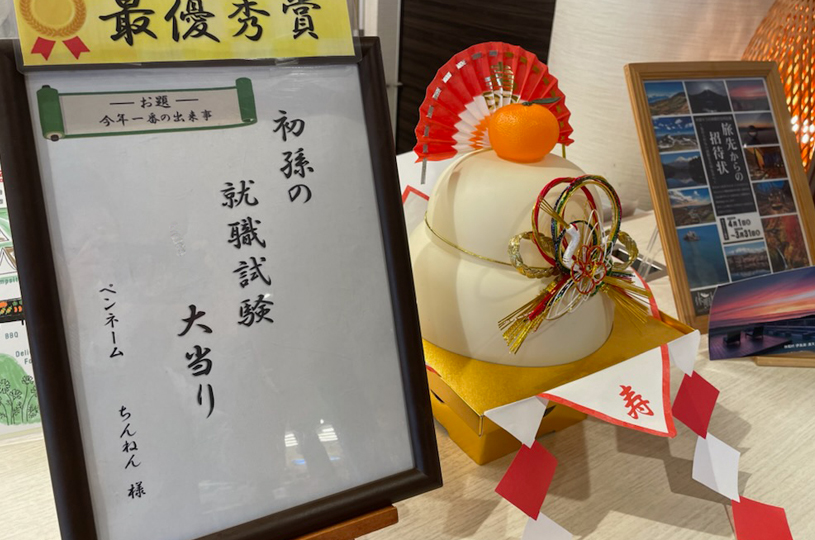 最優秀賞
お題
今年一番の出来事
初孫の
就職試験
大当り
ペンネーム ちんねん 様
寿
旅先からの
招待状
4月1日
3月31日
BBQ